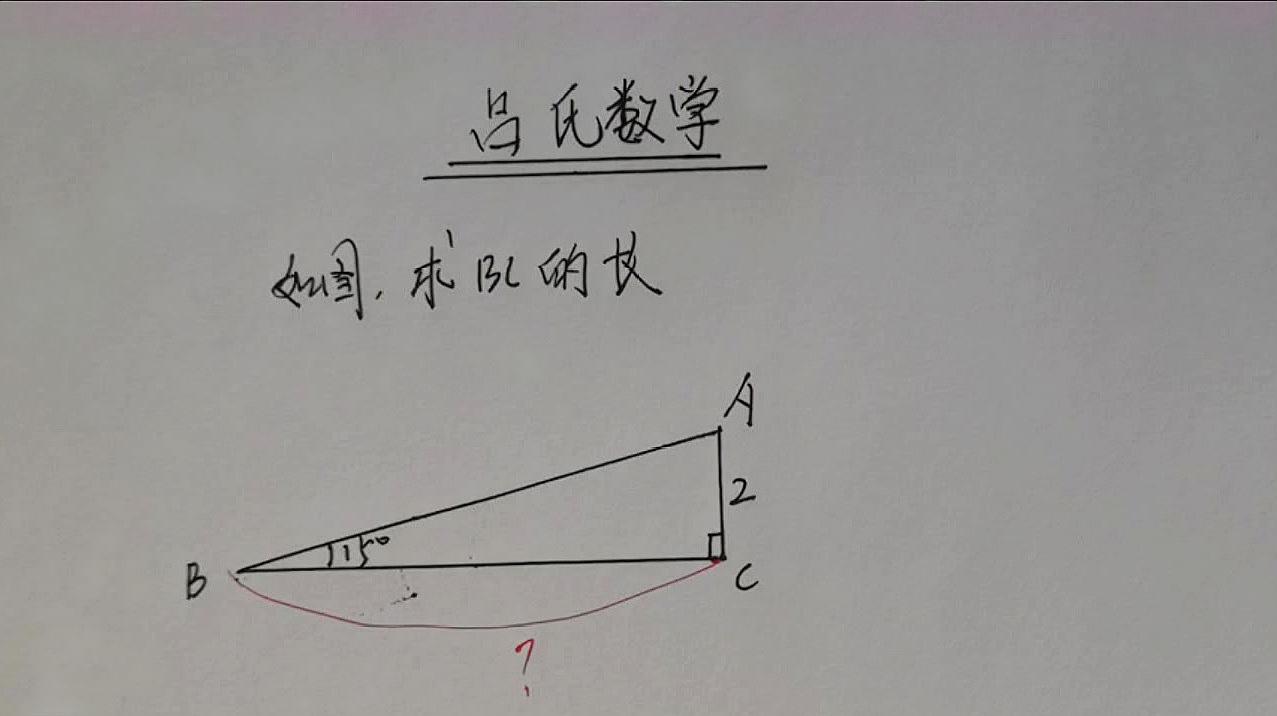 吕氏数学
如图,求BC的长
A
2
15°
B
C
?